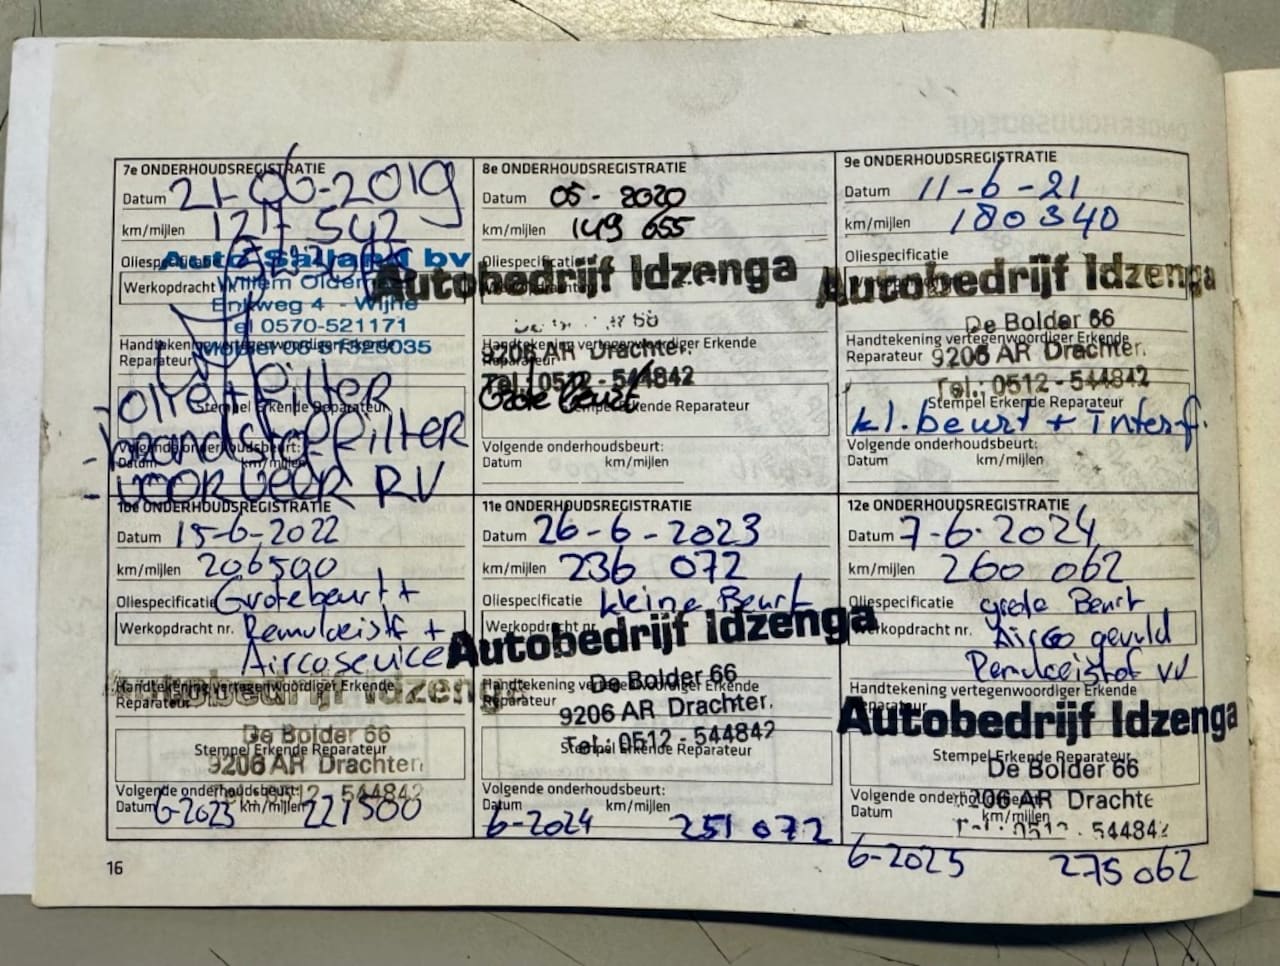 7e ONDERHOUDSREGISTRATIE
Datum 21-06-2019
km/mijlen 127 542
Oliespecificatie
Auto Salland bv
Werkopdracht Willem
Enkweg 4 - Wijhe
Tel 0570-521171
Handtekening vertegenwoordiger Erkende
Reparateur Mobiel 06-51323035
- olie + Filter
Stempel Erkende Reparateur
- brandstof Filter
Volgende onderhoudsbeurt:
Datum km/mijlen
- VOOR VEER RV
8e ONDERHOUDSREGISTRATIE
Datum 05 - 2020
km/mijlen 149 655
Oliespecificatie
Autobedrijf Idzenga
Handtekening vertegenwoordiger Erkende
Reparateur
9206 AR Drachten
Tel.: 0512 - 544842
Grote Beurt
Stempel Erkende Reparateur
Volgende onderhoudsbeurt:
Datum km/mijlen
9e ONDERHOUDSREGISTRATIE
Datum 11-6-21
km/mijlen 180340
Oliespecificatie
Autobedrijf Idzenga
De Bolder 66
Handtekening vertegenwoordiger Erkende
Reparateur
9206 AR Drachten.
Tel.: 0512 - 544842
Stempel Erkende Reparateur
kl. beurt + interf.
Volgende onderhoudsbeurt:
Datum km/mijlen
10e ONDERHOUDSREGISTRATIE
Datum 15-6-2022
km/mijlen 206500
Oliespecificatie Grote beurt +
Werkopdracht nr. Remvloeistf +
Aircoservice
Autobedrijf Idzenga
Handtekening vertegenwoordiger Erkende
Reparateur
De Bolder 66
Stempel Erkende Reparateur
9206 AR Drachten
Volgende onderhoudsbeurt:
544842
Datum 6-2023 km/mijlen 221500
11e ONDERHOUDSREGISTRATIE
Datum 26-6-2023
km/mijlen 236 072
Oliespecificatie kleine Beurt
Werkopdracht nr.
Autobedrijf Idzenga
De Bolder 66
Handtekening vertegenwoordiger Erkende
Reparateur
9206 AR Drachten.
Tel.: 0512 - 544842
Stempel Erkende Reparateur
Volgende onderhoudsbeurt:
Datum km/mijlen
6-2024 251 072
12e ONDERHOUDSREGISTRATIE
Datum 7-6-2024
km/mijlen 260 062
Oliespecificatie grote Beurt
Werkopdracht nr. Airco gevuld
Remvloeistof VV
Handtekening vertegenwoordiger Erkende
Reparateur
Autobedrijf Idzenga
Stempel Erkende Reparateur
De Bolder 66
Volgende onderhoudsbeurt:
9206 AR Drachte
Datum km/mijlen
544842
6-2025 275 062
16